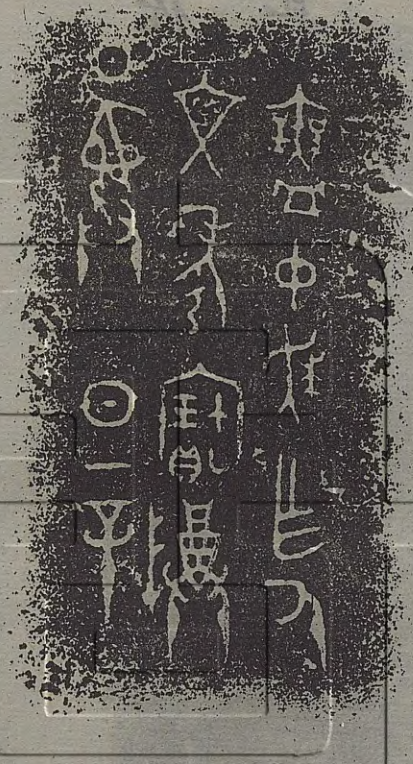 中乍氒
文考寶尊
彝日辛